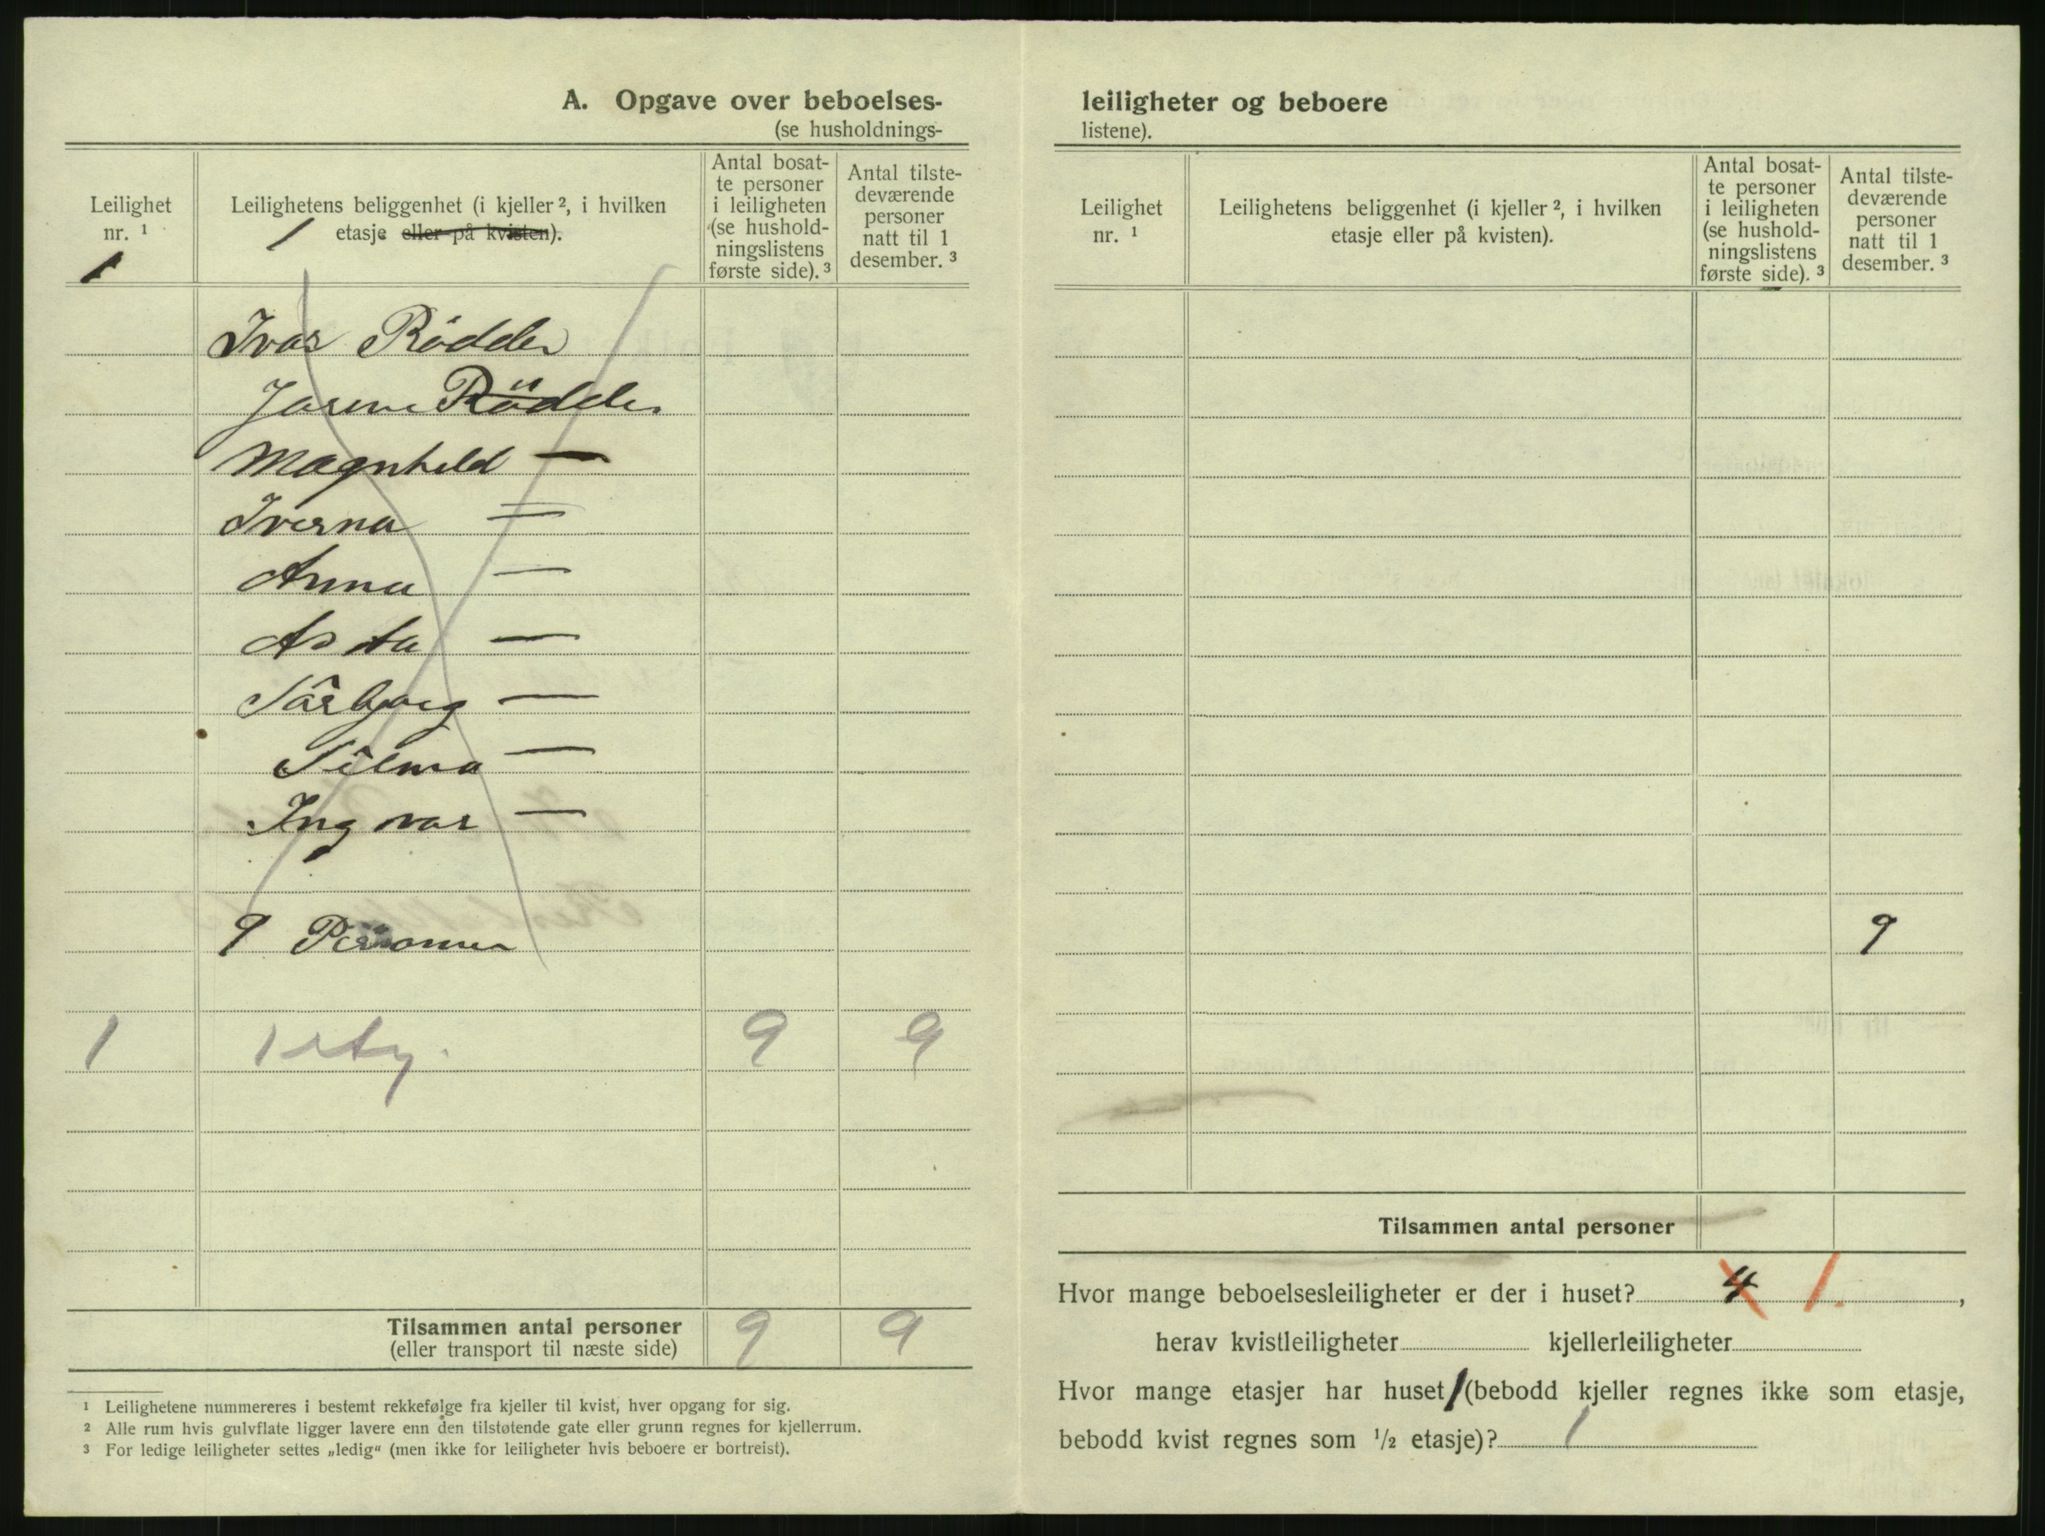 A. Opgave over beboelses-
(se husholdnings-
Leilighet
nr. ¹
1
Leilighetens beliggenhet (i kjeller ², i hvilken
1 etasje eller på kvisten).
Antal bosat-
te personer
i leiligheten
(se hushold-
ningslistens
første side). ³
Antal tilste-
deværende
personer
natt til 1
desember. ³
Ivar Rödder
Jorine Rödder
Magnhild —
Iverna —
Anna —
Asta —
Sârbjorg —
Silma —
Ingvar —
9 Personer
1 1 etg. 9 9
Tilsammen antal personer 9 9
(eller transport til næste side)
¹ Leilighetene nummereres i bestemt rekkefølge fra kjeller til kvist, hver opgang for sig.
² Alle rum hvis gulvflate ligger lavere enn den tilstøtende gate eller grunn regnes for kjellerrum.
³ For ledige leiligheter settes „ledig“ (men ikke for leiligheter hvis beboere er bortreist).
leiligheter og beboere
listene).
Leilighet
nr. ¹
Leilighetens beliggenhet (i kjeller ², i hvilken
etasje eller på kvisten).
Antal bosat-
te personer
i leiligheten
(se hushold-
ningslistens
første side). ³
Antal tilste-
deværende
personer
natt til 1
desember. ³
9
Tilsammen antal personer
Hvor mange beboelsesleiligheter er der i huset? 4 1.,
herav kvistleiligheter kjellerleiligheter
Hvor mange etasjer har huset 1 (bebodd kjeller regnes ikke som etasje,
bebodd kvist regnes som ½ etasje)? 1